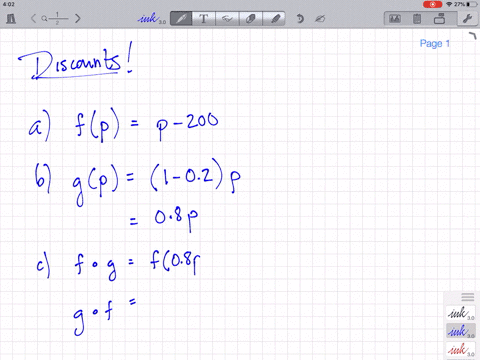 4:02
27%
1/2
ink 3.0
T
Page 1
Discounts!
a) f(p) = p - 200
b) g(p) = (1 - 0.2) p
= 0.8p
c) f ∘ g = f(0.8p
g ∘ f =
ink 3.0
ink 3.0
ink 3.0